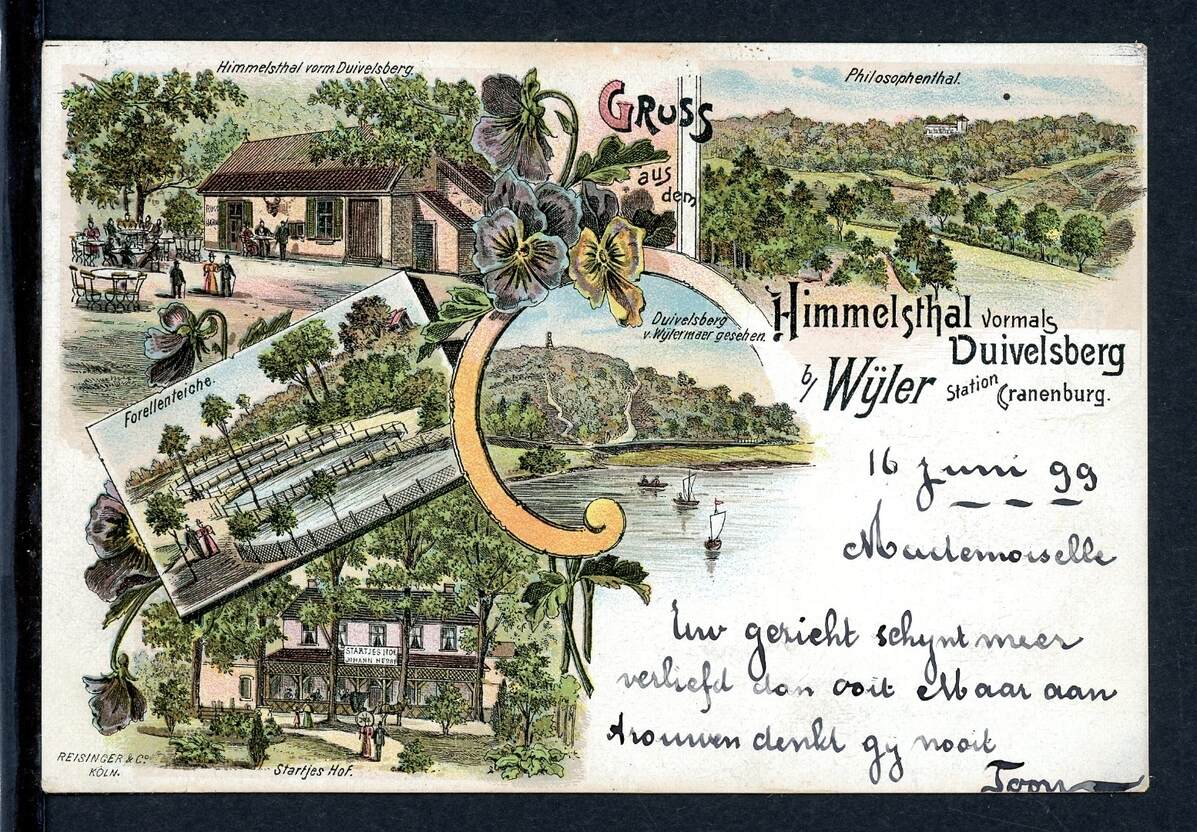 Himmelsthal vorm Duivelsberg.
GRUSS
aus
dem
Philosophenthal.
Himmelsthal vormals
Duivelsberg
b/ Wÿler Station Cranenburg.
Duivelsberg
v. Wylermeer gesehen.
Forellenteiche.
16 Juni 99
Mademoiselle
Uw gezicht schynt meer
verliefd dan ooit Maar aan
trouwen denkt gy nooit
Toon
STARTJES HOF
JOHANN
Startjes Hof.
REISINGER & Co
KÖLN.